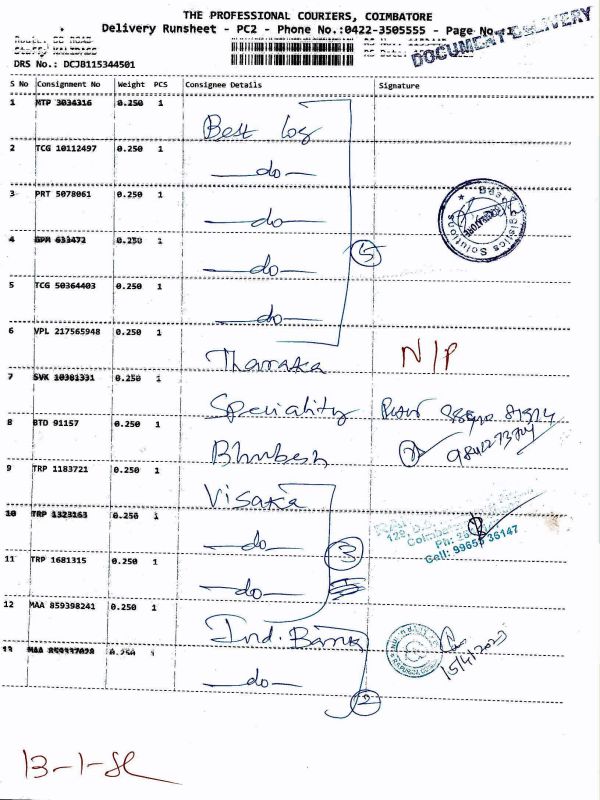 THE PROFESSIONAL COURIERS, COIMBATORE
Delivery Runsheet - PC2 - Phone No.:0422-3505555 - Page No.:1
DOCUMENT DELIVERY
DRS No.: DCJB115344501
S No Consignment No Weight PCS Consignee Details Signature
1 MTP 3034316 0.250 1
Best log
2 TCG 10112497 0.250 1
—do—
3 PRT 5078061 0.250 1
—do—
4 GPM 633472 0.250 1
—do—
5
5 TCG 50364403 0.250 1
—do—
Logistics Solutions
6 VPL 217565948 0.250 1
Tharaka N/P
7 SVK 10381331 0.250 1
Speciality
8 BTD 91157 0.250 1
Bhubesh
9 TRP 1183721 0.250 1
Visaka
10 TRP 1323163 0.250 1
—do—
3
Cell: 99655 36147
11 TRP 1681315 0.250 1
—do—
12 MAA 859398241 0.250 1
Ind. Bank
15/4/2023
13 MAA 859337028 0.250 1
—do—
2
13-1-